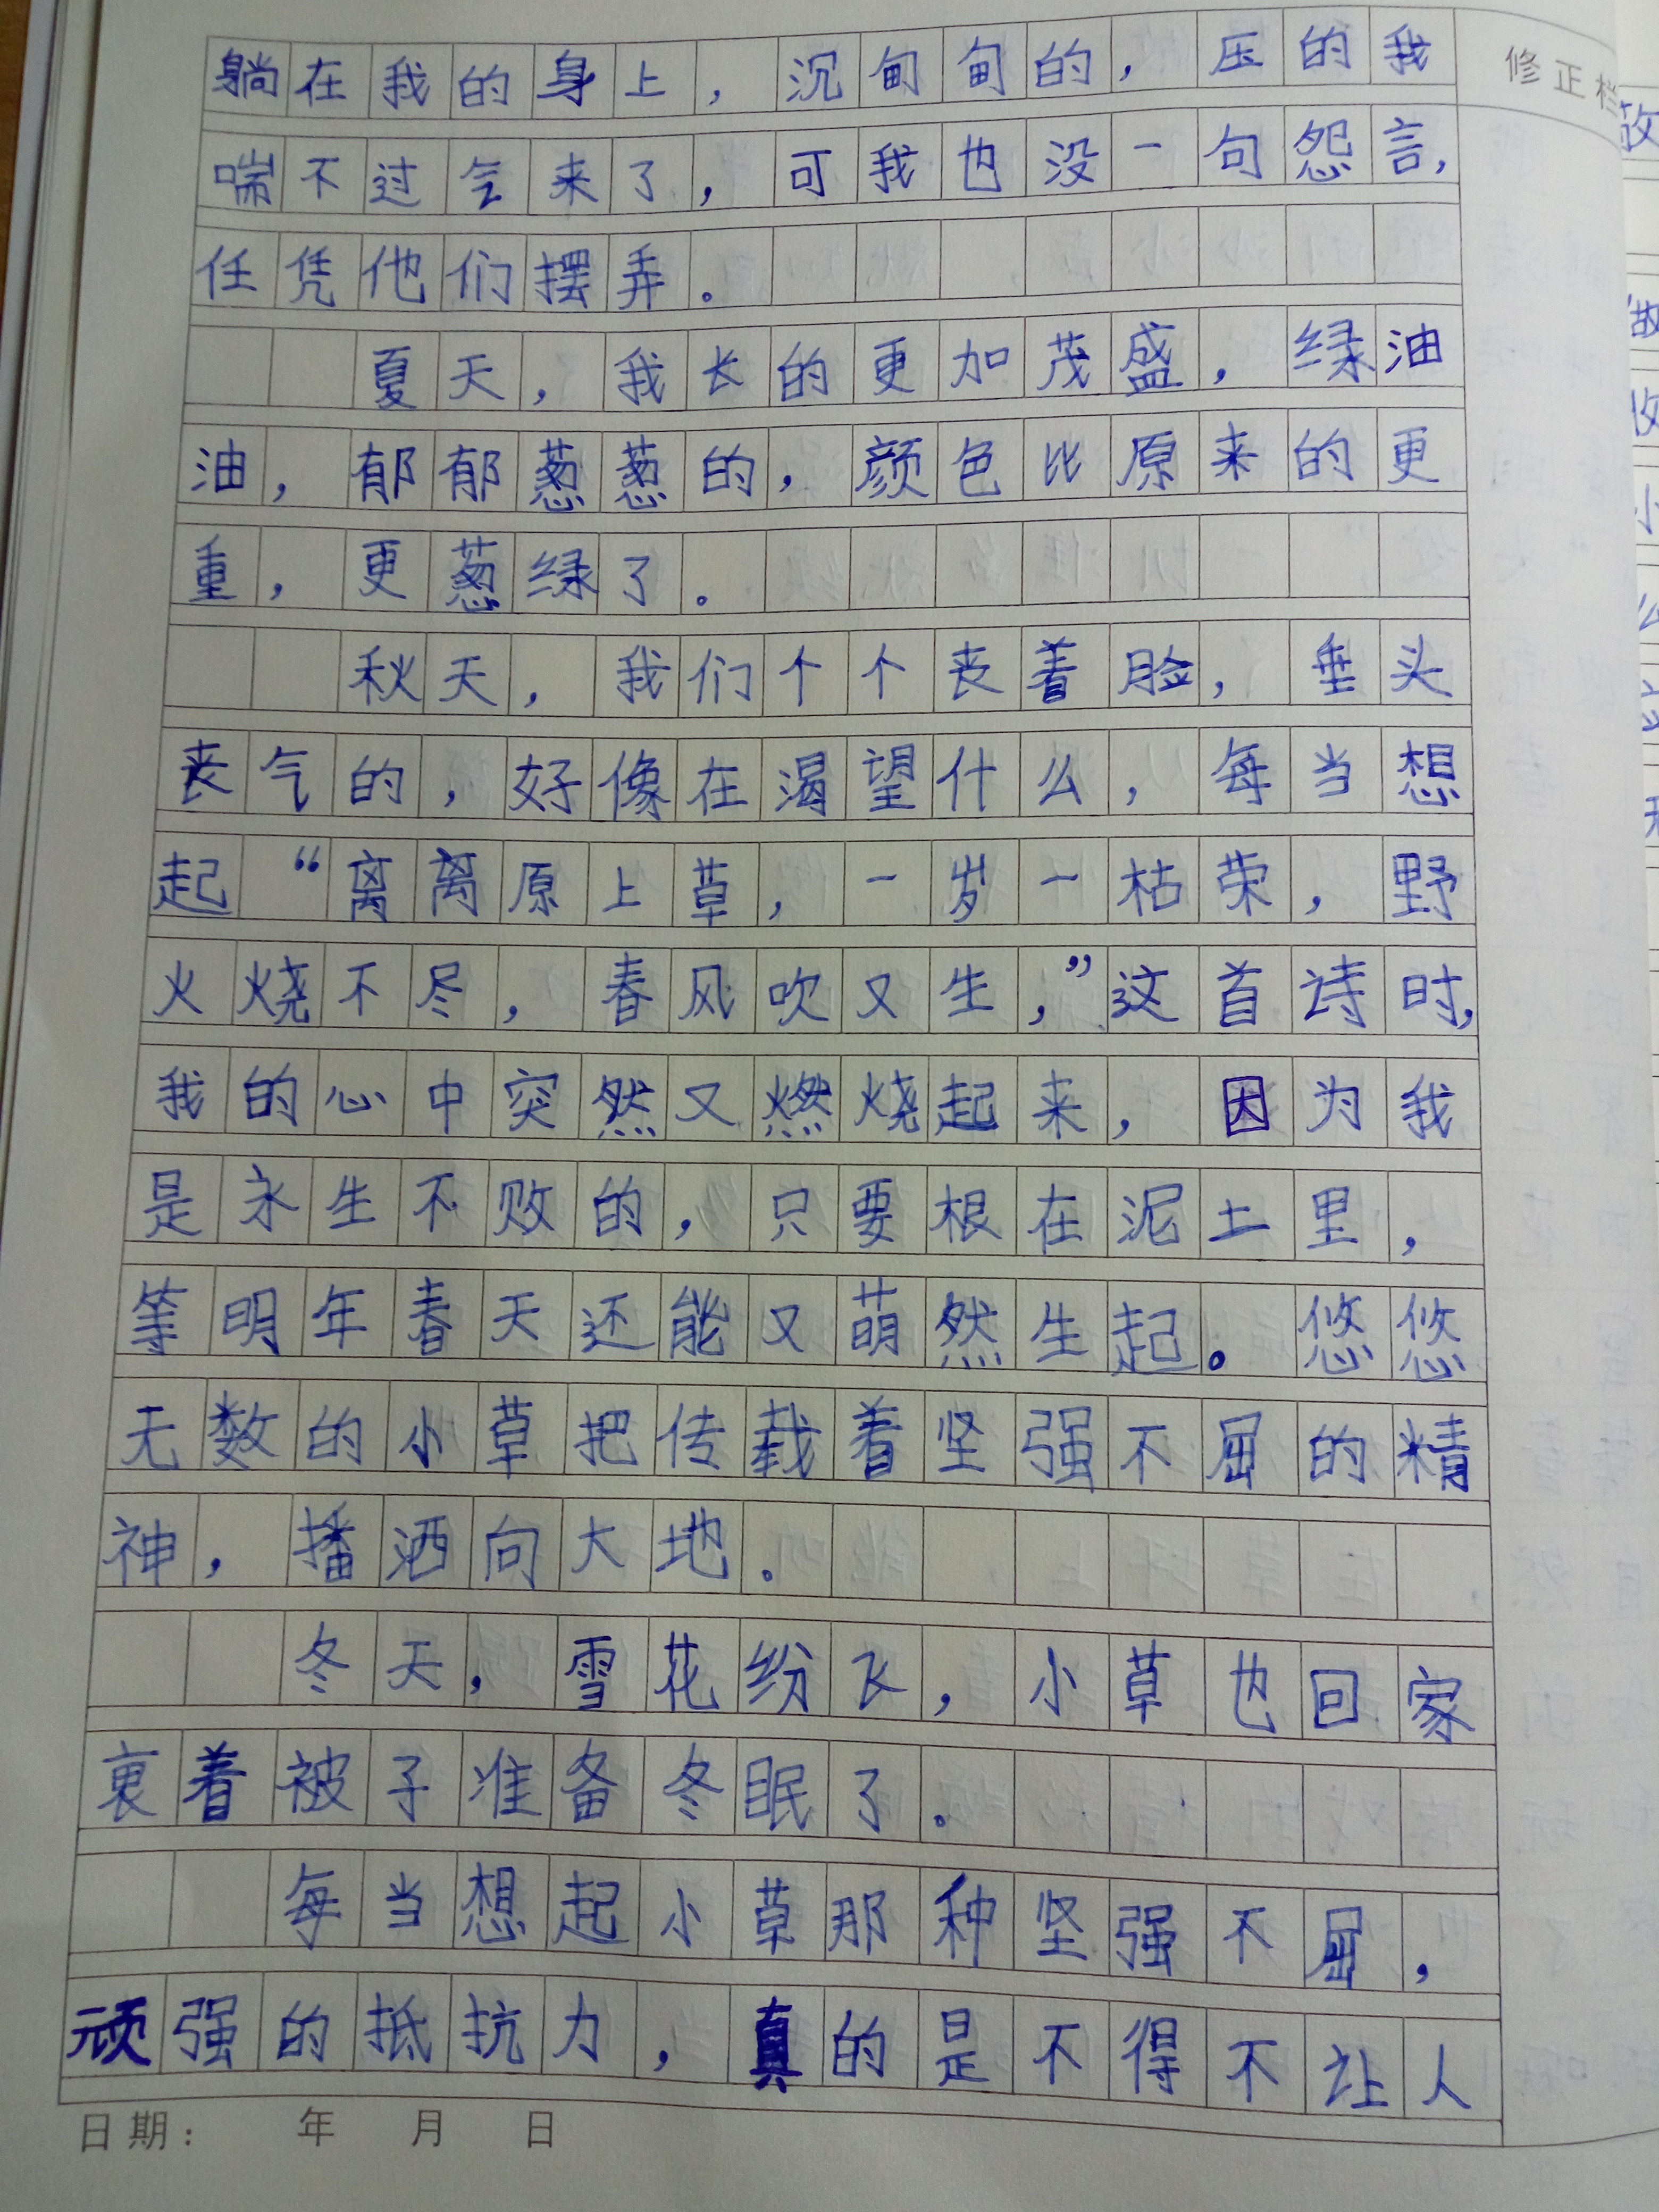 躺在我的身上，沉甸甸的，压的我
修正栏
喘不过气来了，可我也没一句怨言，
任凭他们摆弄。
夏天，我长的更加茂盛，绿油
油，郁郁葱葱的，颜色比原来的更
重，更葱绿了。
秋天，我们个个丧着脸，垂头
丧气的，好像在渴望什么，每当想
起“离离原上草，一岁一枯荣，野
火烧不尽，春风吹又生，”这首诗时，
我的心中突然又燃烧起来，因为我
是永生不败的，只要根在泥土里，
等明年春天还能又萌然生起。悠悠
无数的小草把传载着坚强不屈的精
神，播洒向大地。
冬天，雪花纷飞，小草也回家
裹着被子准备冬眠了。
每当想起小草那种坚强不屈，
顽强的抵抗力，真的是不得不让人
日期： 年 月 日